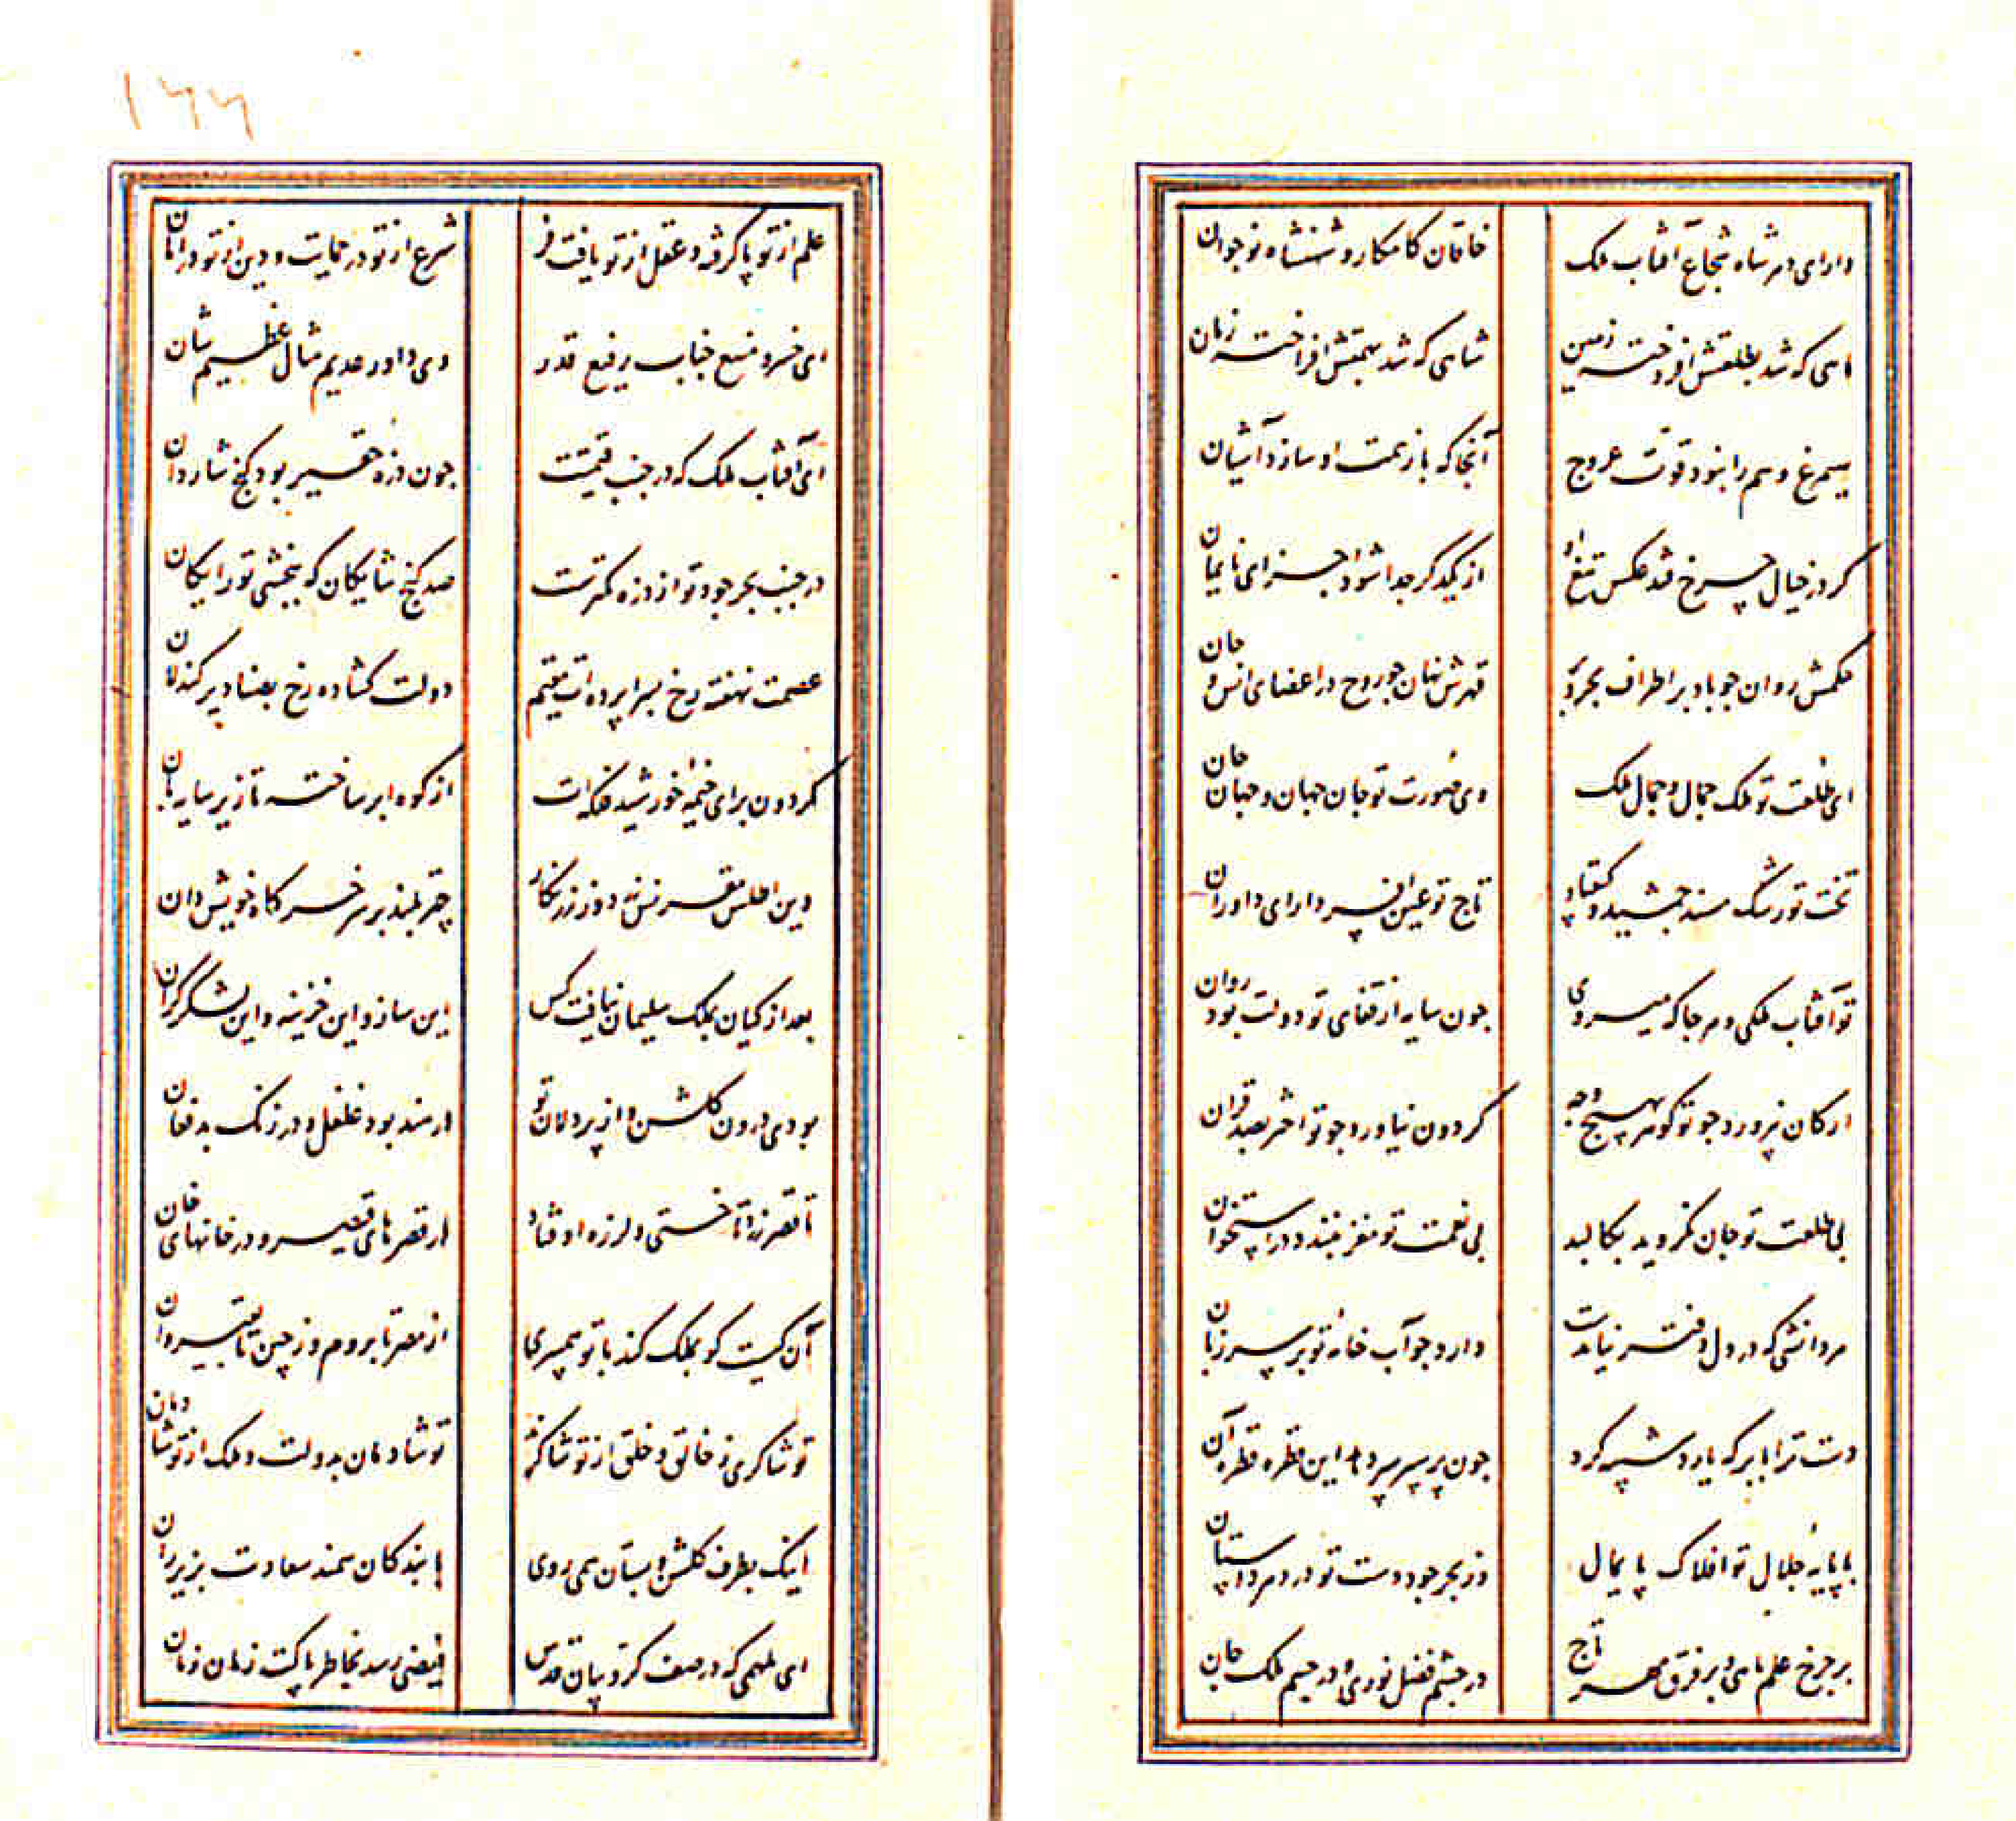 دارای دهر شاه شجاع آفتاب ملک خاقان کامکار و شهنشاه نوجوان
ماهی که شد بطلعتش افروخته زمین شاهی که شد بهمتش افراخته زمان
سیمرغ وهم را نبود قوت عروج آنجا که باز همت او سازد آشیان
کر در خیال چرخ فتد عکس تیغ او از یکدکر جدا شود اجزای نایمان
حکمش روان جو باد بر اطراف بحر و بر قهرش نهان جو روح در اعضای انس و جان
ای طلعت تو ملک جمال و جمال ملک وی صورت تو جان جهان و جهان جان
تخت تو رشک مسند جمشید و کیقباد تاج تو غبن افسر دارای داوران
تو آفتاب ملکی و هر جا که میروی جون سایه از قفای تو دولت بود روان
ارکان نپرورد جو تو کوهر بهیچ وجه کردون نیاورد جو تو اختر بصد قران
بی طلعت تو جان نکروید بکالبد بی نعمت تو مغز نبندد در استخوان
هر دانشی که در دل دفتر نیامدست دارد جو آب خامه تو بر سر زبان
دست ترا بابر که یارد شبیه کرد جون بر سپرسپر دهد این و قطره قطره آن
با پایه جلال تو افلاک پایمال وز بحر جود دست تو در دهر داستان
بر جرخ علم ماهی و بر فرق مهر تاج در جشم فضل نوری و در جسم ملک جان
١٦٦
علم از تو پا کرفته و عقل از تو یافت فر شرع از تو در حمایت و دین از تو در امان
ای خسرو منیع جناب رفیع قدر وی داور عدیم مثال عظیم شان
ای آفتاب ملک که در جنب قیمتت جون ذره حقیر بود کنج شاردان
در جنب بحر جود تو از ذره کمترست صد کنج شایکان که ببخشی تو رایکان
عصمت نهفته رخ بسراپرده ات مقیم دولت کشاده رخ بفضا دیر کندلان
کردون برای خیمه خورشید فلکه ات از کوه ابر ساخته تا زیر سایه بان
وین اطلس مقرنس نه دوز زرنکار چتر بلند بر سر خرکاه خویش دان
بعد از کیان بملک سلیمان نیافت کس این ساز و این خزینه و این لشکر کران
بودی درون کلشن و از پردلان تو در هند بود غلغل و در زنک بد فغان
تا قصر زرد تاختی و لرزه اوفتاد در قصرهای قیصر و در خانهای خان
آن کیست کو بملک کند با تو همسری از مصر تا بروم و ز چین تا بقیروان
تو شاکری ز خالق و خلق از تو شاکرند تو شادمان بدولت و ملک از تو شادمان
اینک بطرف کلشن و بستان همی روی با بندکان سمند سعادت بزیر ران
ای ملهمی که در صف کروبیان قدس فیضی رسد بخاطر پاکت زمان زمان